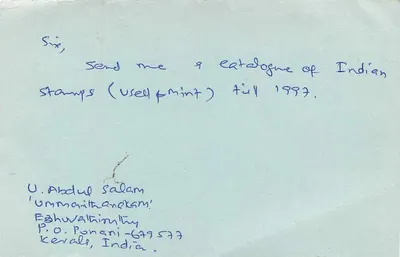 Sir,
Send me a catalogue of Indian
Stamps (used & mint) till 1997.
U. Abdul Salam
'Ummaithanakam'
Ezhuvathiruthy
P.O. Ponani - 679577
Kerala, India.